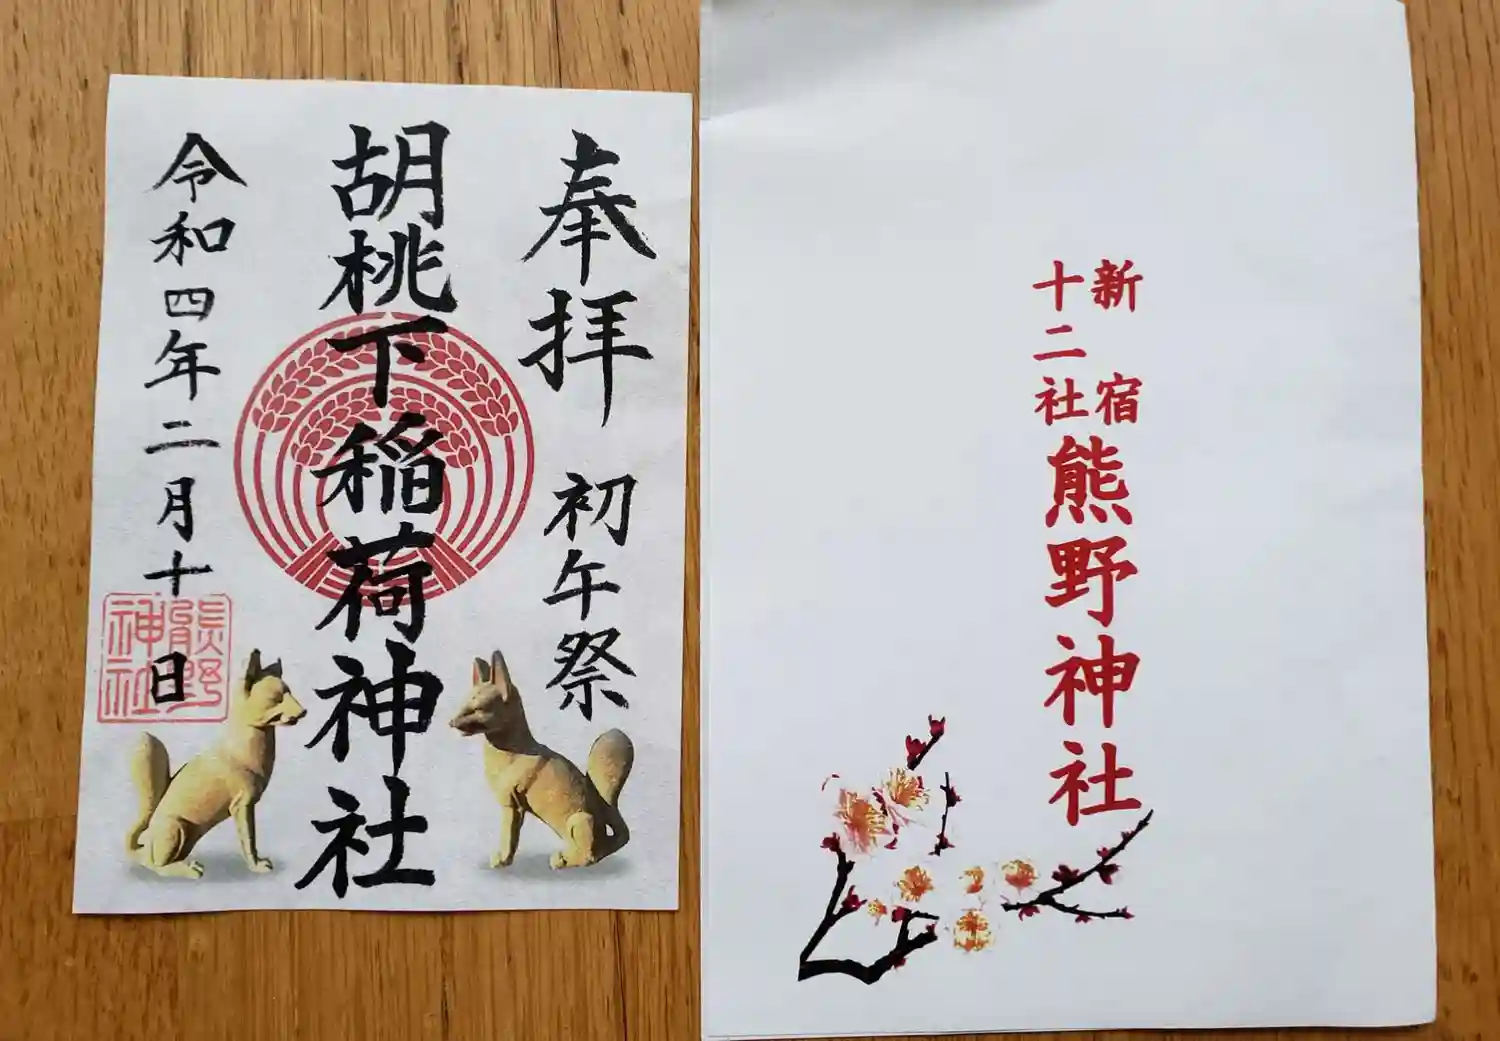 奉拝 初午祭
胡桃下稲荷神社
令和四年二月十日
熊野
神社
新宿
十二社
熊野神社